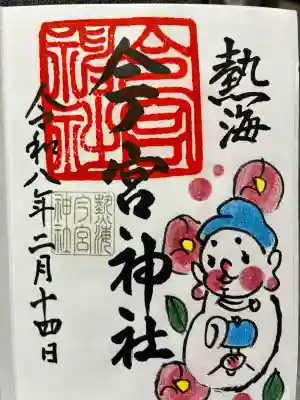 熱海
今宮神社
令和八年二月十四日
今宮
神社
熱海
今宮
神社